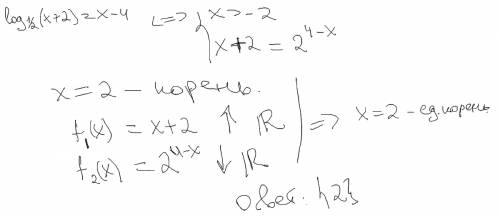 log½(x+2)=x-4 <=> { x>-2
x+2 = 2^{4-x}
x=2 - корень.
f₁(x) = x+2 ↑ ℝ
f₂(x) = 2^{4-x} ↓ ℝ
=> x=2 - ед. корень
Ответ: {2}